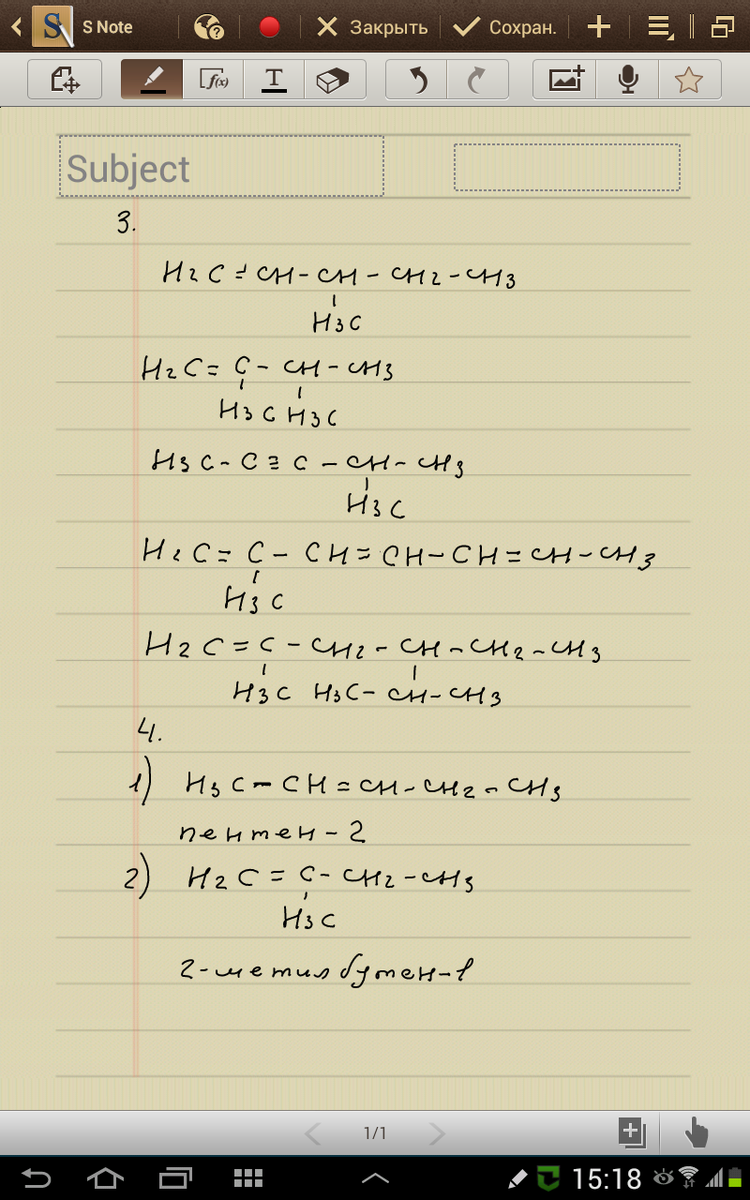 S Note
Закрыть
Сохран.
f(x)
T
Subject
3.
H2C=CH-CH-CH2-CH3
H3C
H2C=C-CH-CH3
H3C H3C
H3C-C≡C-CH-CH3
H3C
H2C=C-CH=CH-CH=CH-CH3
H3C
H2C=C-CH2-CH-CH2-CH3
H3C H3C-CH-CH3
4.
1) H3C-CH=CH-CH2-CH3
пентен-2
2) H2C=C-CH2-CH3
H3C
2-метилбутен-1
1/1
15:18